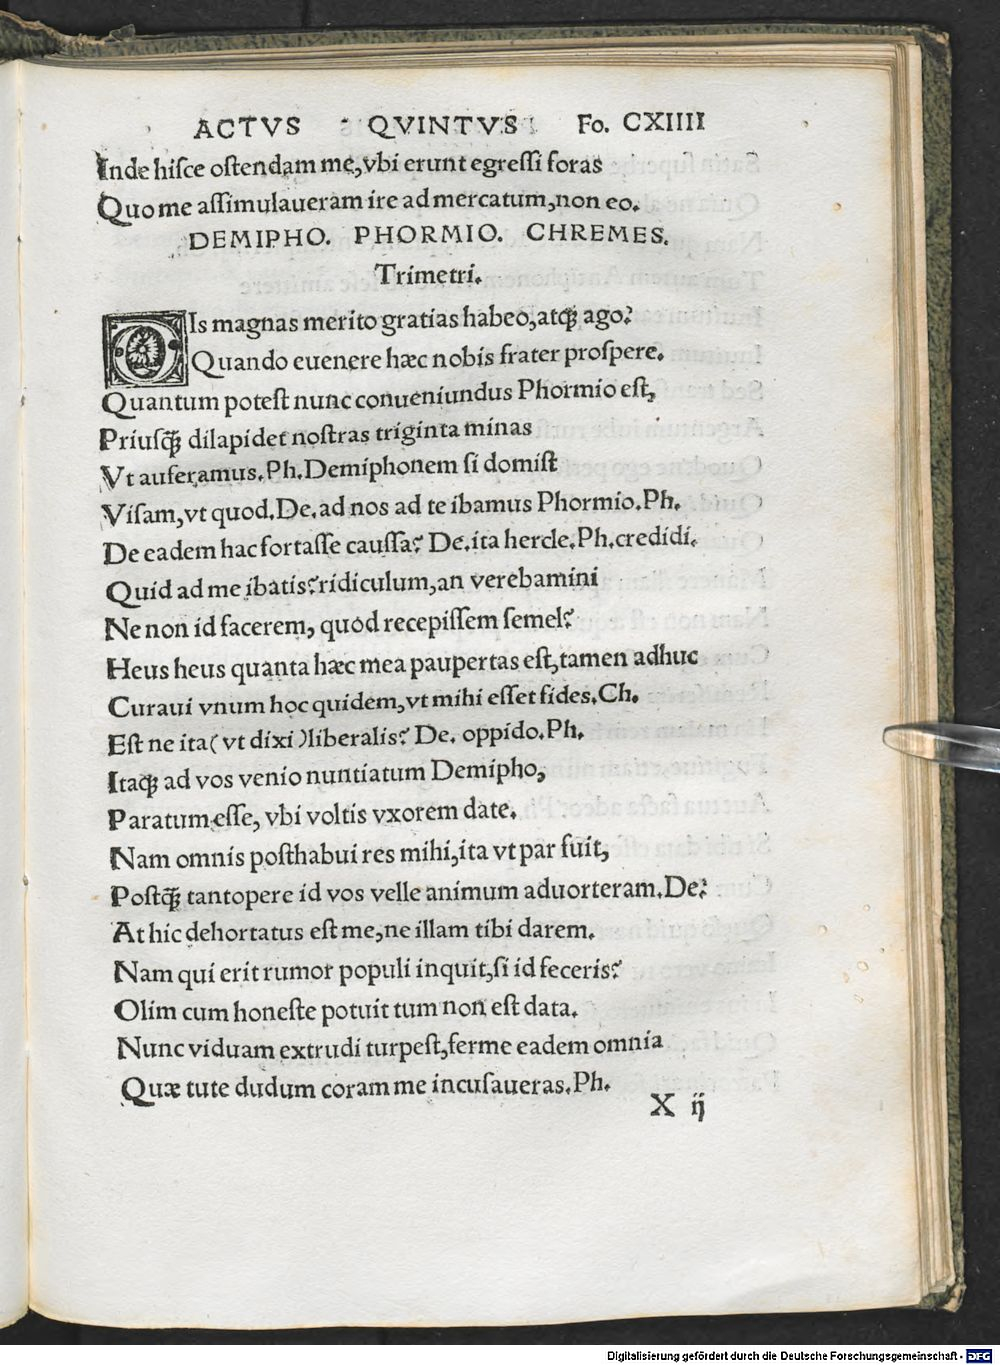 ACTVS QVINTVS Fo. CXIIII
Inde hiſce oſtendam me,vbi erunt egreſſi foras
Quo me aſſimulaueram ire ad mercatum,non eo.
DEMIPHO. PHORMIO. CHREMES.
Trimetri.
DIs magnas merito gratias habeo,atq̃ ago?
Quando euenere hæc nobis frater proſpere.
Quantum poteſt nunc conueniundus Phormio eſt,
Priuſq̃ dilapidet noſtras triginta minas
Vt auferamus.Ph.Demiphonem ſi domiſt
Viſam,vt quod.De.ad nos ad te ibamus Phormio.Ph.
De eadem hac fortaſſe cauſſa? De.ita hercle.Ph.credidi.
Quid ad me ibatis?ridiculum,an verebamini
Ne non id facerem, quod recepiſſem ſemel?
Heus heus quanta hæc mea paupertas eſt,tamen adhuc
Curaui vnum hoc quidem,vt mihi eſſet fides.Ch.
Eſt ne ita( vt dixi )liberalis? De. oppido.Ph.
Itaq̃ ad vos venio nuntiatum Demipho,
Paratum eſſe, vbi voltis vxorem date.
Nam omnis poſthabui res mihi,ita vt par fuit,
Poſtq̃ tantopere id vos velle animum aduorteram.De?
At hic dehortatus eſt me,ne illam tibi darem.
Nam qui erit rumor populi inquit,ſi id feceris?
Olim cum honeſte potuit tum non eſt data.
Nunc viduam extrudi turpeſt,ferme eadem omnia
Quæ tute dudum coram me incuſaueras.Ph.
X ij
Digitalisierung gefördert durch die Deutsche Forschungsgemeinschaft - DFG